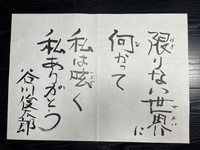 限りない世界に
何かって
私は呟く
私ありがとう
谷川俊太郎